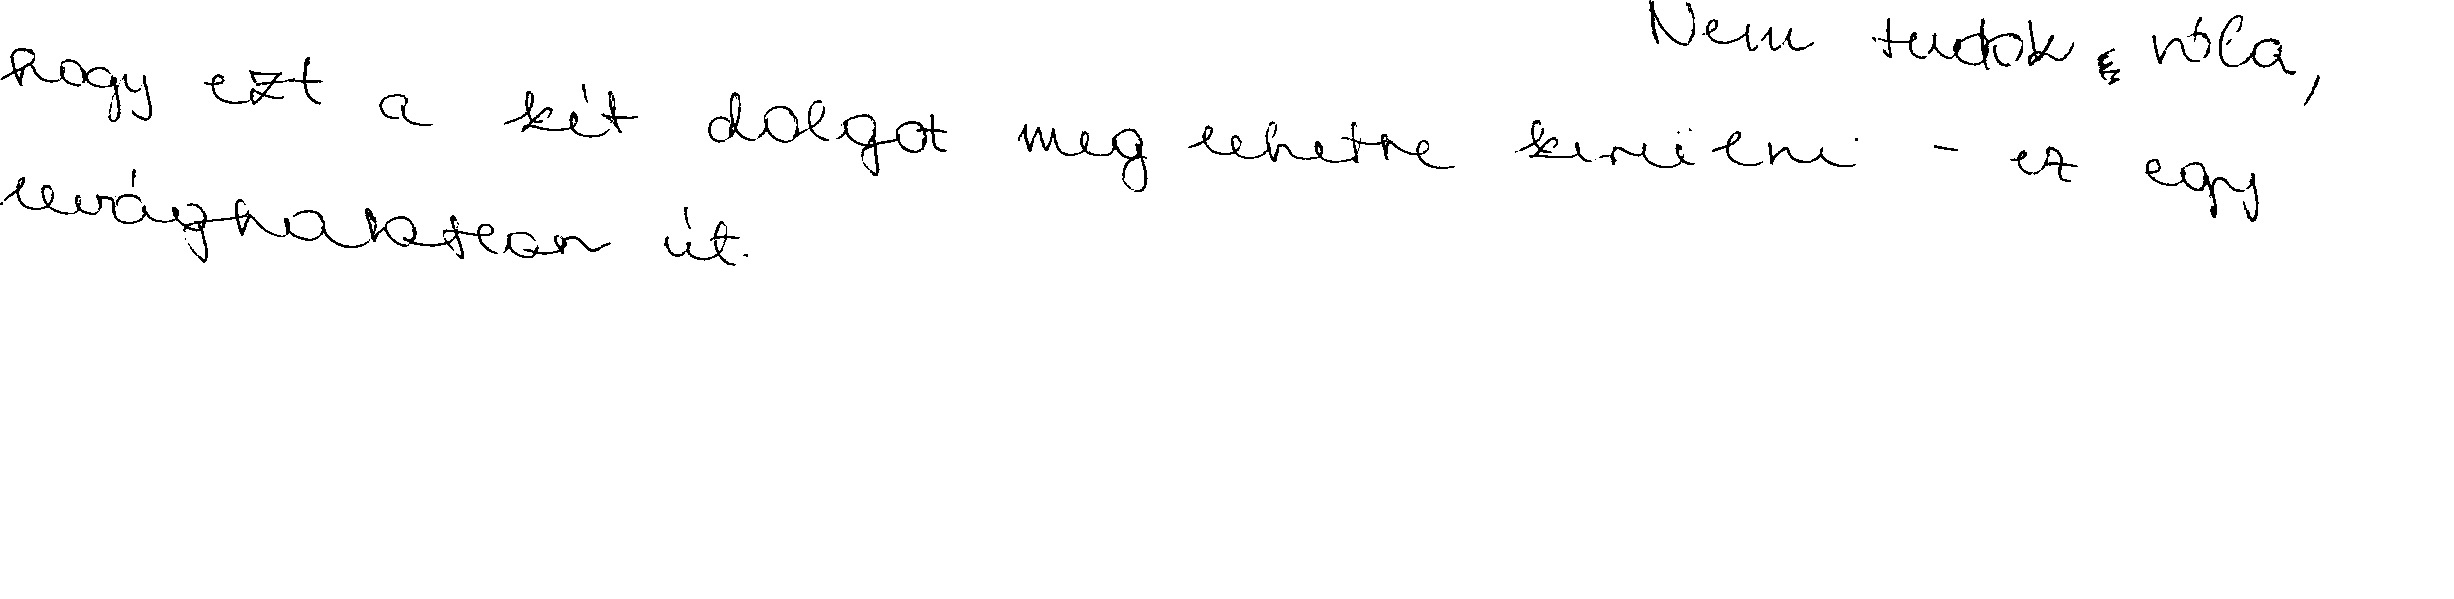 Nem tudok róla,
hogy ezt a két dolgot meg lehetne kerülni - ez egy
levághatatlan út.